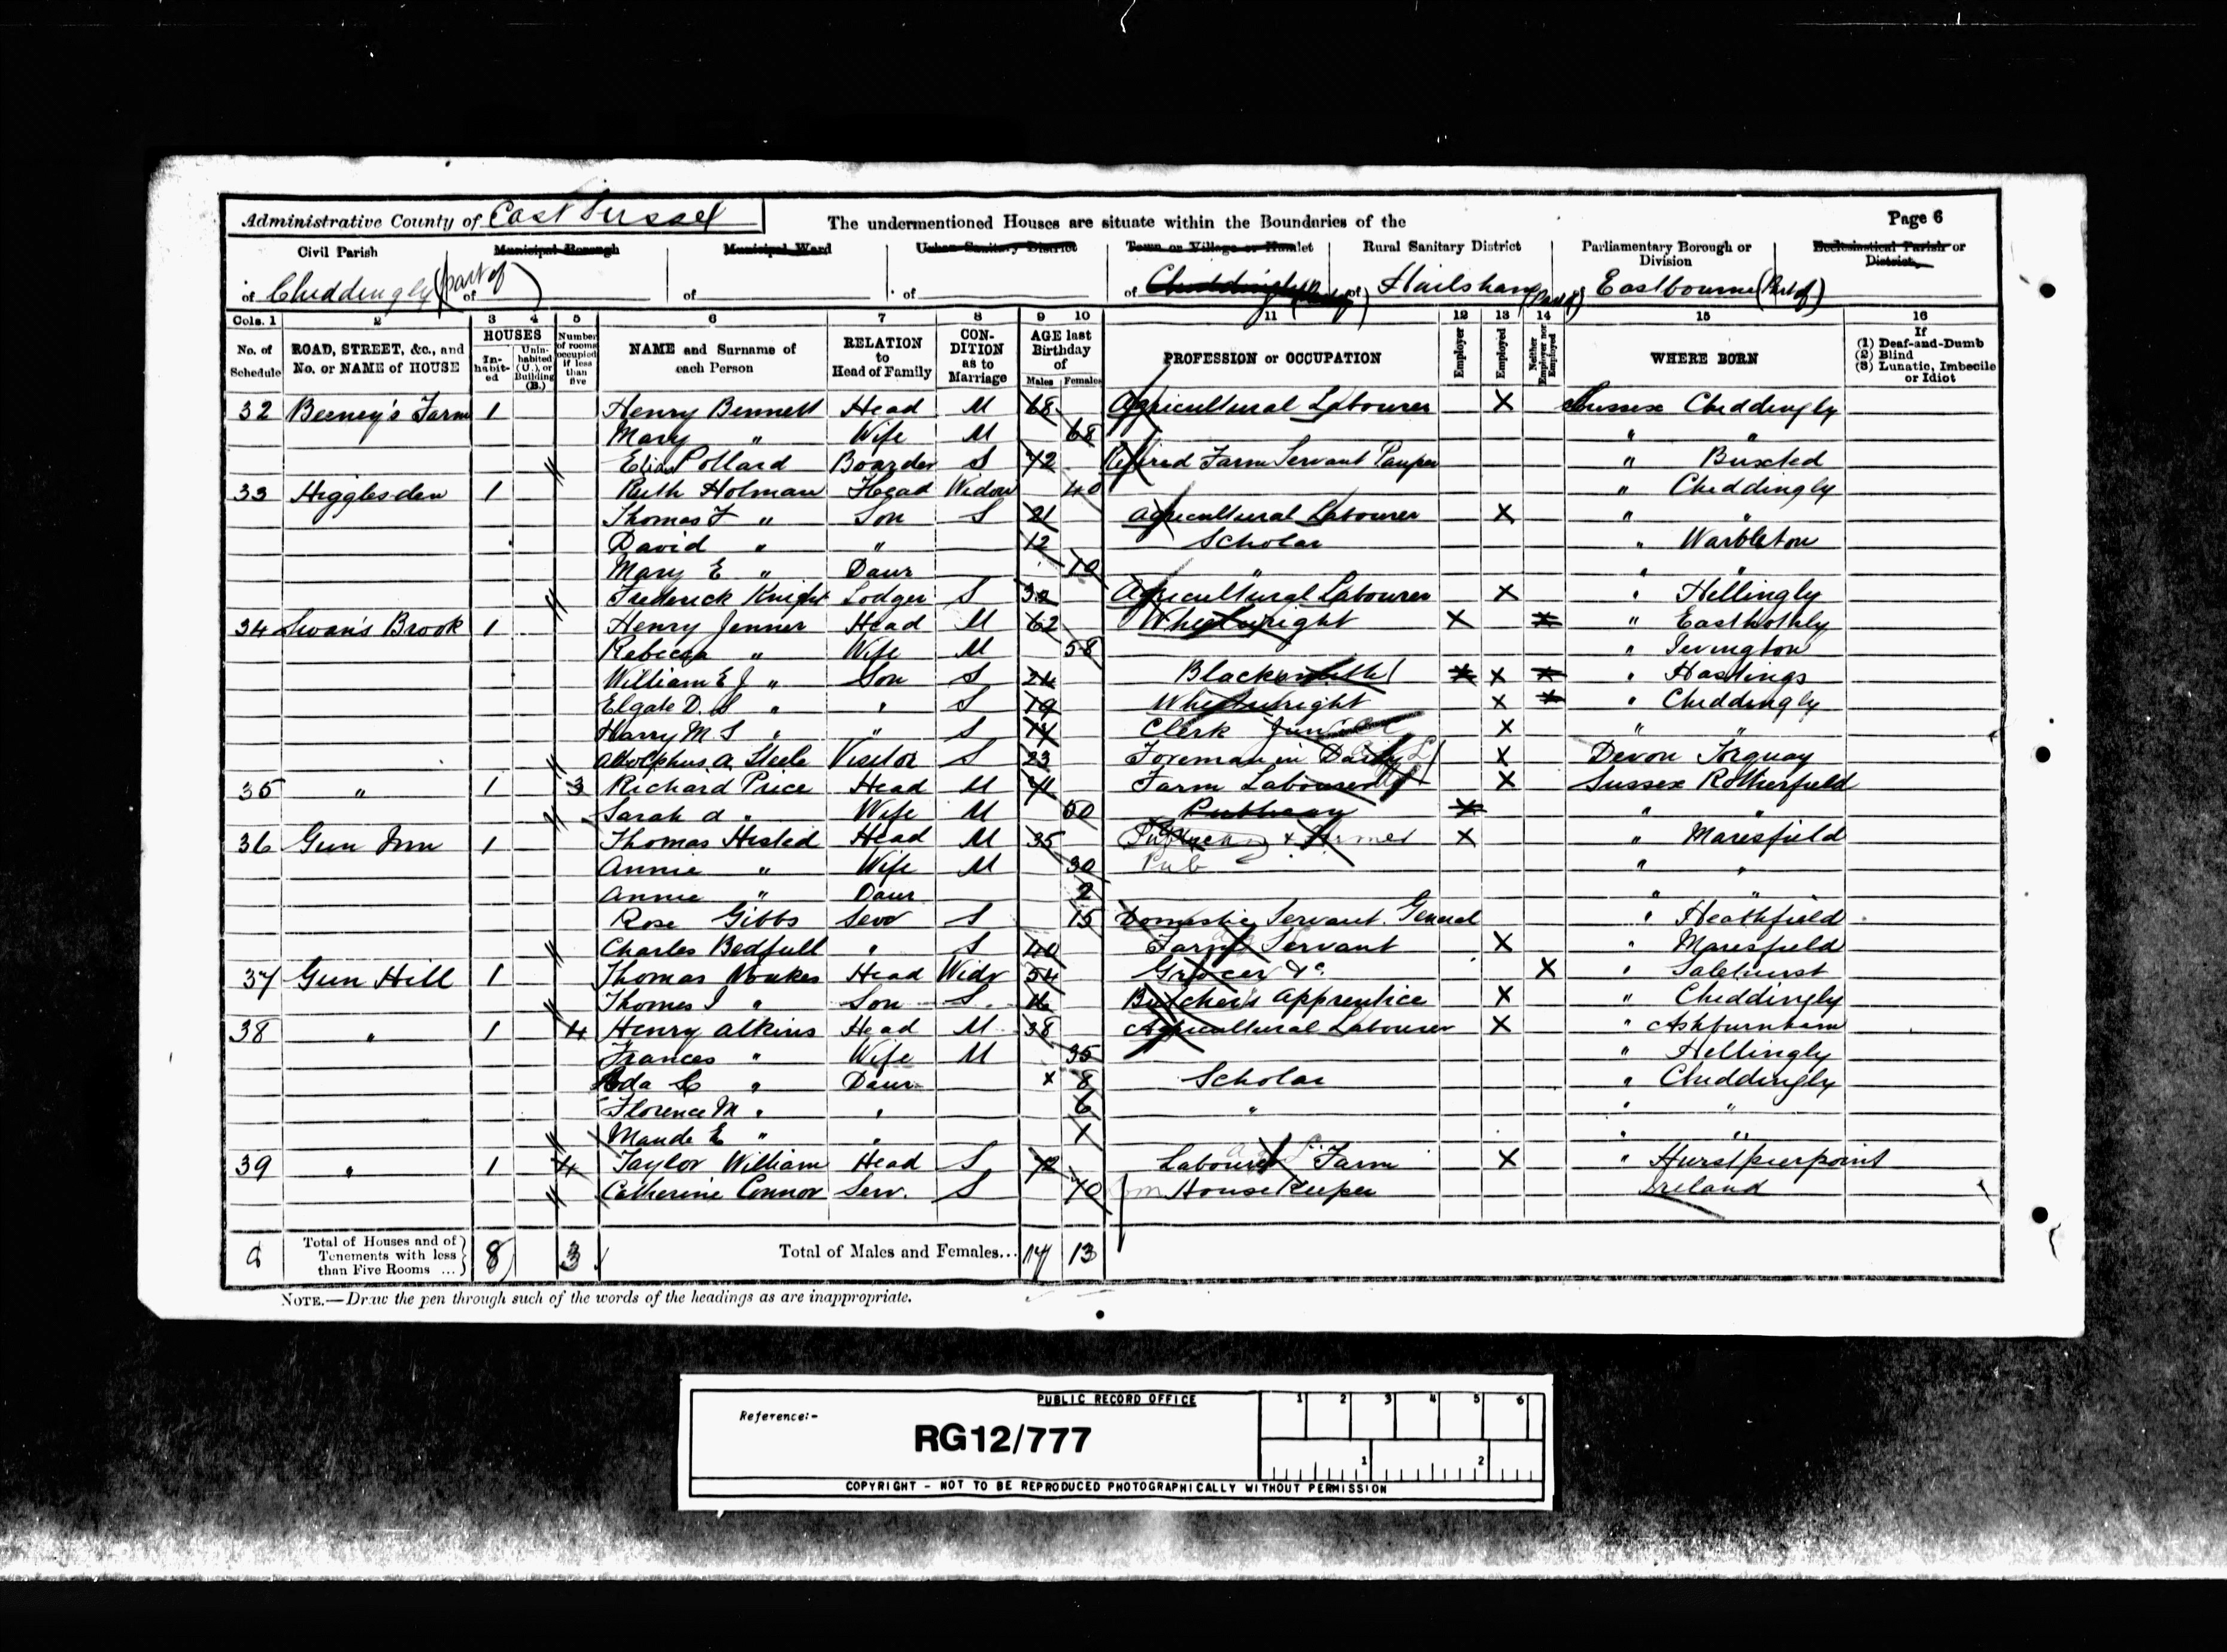 Administrative County of East Sussex The undermentioned Houses are situate within the Boundaries of the Page 6
Civil Parish Municipal Borough Municipal Ward Urban Sanitary District Town or Village or Hamlet Rural Sanitary District Parliamentary Borough or Division Ecclesiastical Parish or District
of Chiddingly (part of) of of of of Chiddingly (Part of) of Hailsham (Part of) of Eastbourne (Part of)
Cols. 1 2 3 4 5 6 7 8 9 10 11 12 13 14 15 16
No. of Schedule ROAD, STREET, &c., and No. or NAME of HOUSE HOUSES Inhabited Uninhabited (U.), or Building (B.) Number of rooms occupied if less than five NAME and Surname of each Person RELATION to Head of Family CONDITION as to Marriage AGE last Birthday of Males Females PROFESSION or OCCUPATION Employer Employed Neither Employer nor Employed WHERE BORN If (1) Deaf-and-Dumb (2) Blind (3) Lunatic, Imbecile or Idiot
32 Beeney's Farm 1 Henry Bennett Head M 68 Agricultural Labourer X Sussex Chiddingly
Mary " Wife M 68 " "
Elias Pollard Boarder S 72 Retired Farm Servant Pauper " Buxted
33 Higglesden 1 Ruth Holman Head Widow 40 " Chiddingly
Thomas F " Son S 21 Agricultural Labourer X " "
David " " 12 Scholar " Warbleton
Mary E " Daur 10 " " "
Frederick Knight Lodger S 32 Agricultural Labourer X " Hellingly
34 Swan's Brook 1 Henry Jenner Head M 62 Wheelwright X X " Easthothly
Rebecca " Wife M 58 " Jevington
William E J " Son S 24 Blacksmith X X X " Hastings
Elgate D. S " " S 19 Wheelwright X X " Chiddingly
Harry M S " " S 14 Clerk Junior X " "
Adolphus A Steele Visitor S 23 Foreman in Dairy X Devon Torquay
35 " 1 3 Richard Price Head M 41 Farm Labourer X Sussex Rotherfield
Sarah A " Wife M 50 Publican X " "
36 Gun Inn 1 Thomas Histed Head M 35 Publican & Farmer X " Maresfield
Annie " Wife M 30 Pub " "
Annie " Daur 2 " "
Rose Gibbs Serv S 15 Domestic Servant. General " Heathfield
Charles Bedfull " S 40 Farm Servant X " Maresfield
37 Gun Hill 1 Thomas Noakes Head Widr 54 Grocer &c X " Salehurst
Thomas J " Son S 16 Butcher's Apprentice X " Chiddingly
38 " 1 4 Henry Atkins Head M 38 Agricultural Labourer X " Ashburnham
Frances " Wife M 35 " Hellingly
Ada C " Daur x 8 Scholar " Chiddingly
Florence M " " 6 " " "
Maude E " " 1 " "
39 " 1 4 Taylor William Head S 72 Labourer Farm X " Hurstpierpoint
Catherine Connor Serv. S 70 House Keeper Ireland
Total of Houses and of Tenements with less than Five Rooms ... 8 3 Total of Males and Females... 17 13
NOTE.—Draw the pen through such of the words of the headings as are inappropriate.
PUBLIC RECORD OFFICE
Reference:-
RG12/777
1 2 3 4 5 6
1 2
COPYRIGHT - NOT TO BE REPRODUCED PHOTOGRAPHICALLY WITHOUT PERMISSION